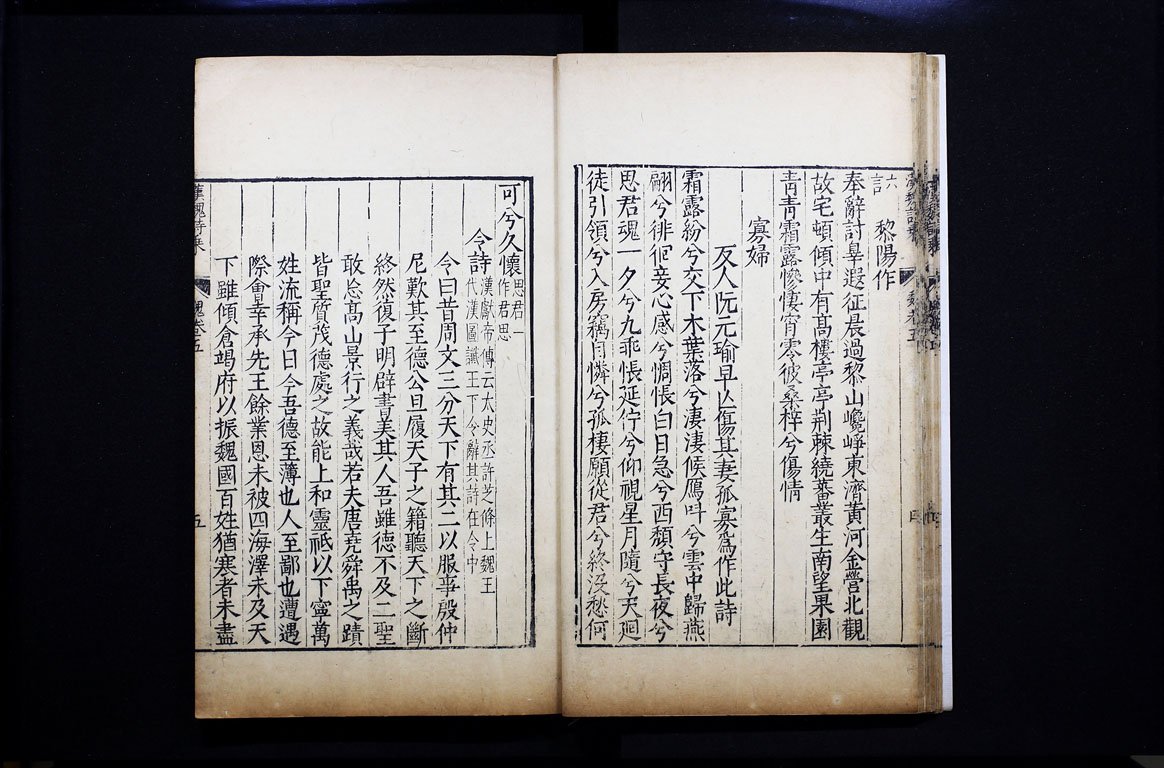 六言
黎陽作
奉辭討辠遐征晨過黎山巉崢東濟黃河金營北觀
故宅頓傾中有高樓亭亭荆棘繞蕃叢生南望果園
青青霜露慘悽宵零彼桑梓兮傷情
寡婦
友人阮元瑜早亾傷其妻孤寡爲作此詩
霜露紛兮交下木葉落兮淒淒候鴈叫兮雲中歸燕
翩兮徘徊妾心感兮惆悵白日急兮西頹守長夜兮
思君魂一夕兮九乖悵延佇兮仰視星月隨兮天迴
徒引領兮入房竊自憐兮孤棲願從君兮終没愁何
可兮久懷思君一作君思
令詩漢獻帝傳云太史丞許芝條上魏王代漢圖讖王下令辭其詩在令中
令曰昔周文三分天下有其二以服事殷仲
尼歎其至德公旦履天子之籍聽天下之斷
終然復子明辟書美其人吾雖德不及二聖
敢忘高山景行之義哉若夫唐堯舜禹之蹟
皆聖質茂德處之故能上和靈祗以下寧萬
姓流稱今日今吾德至薄也人至鄙也遭遇
際會幸承先王餘業恩未被四海澤未及天
下雖傾倉竭府以振魏國百姓猶寒者未盡
漢魏詩乘
魏卷五
五